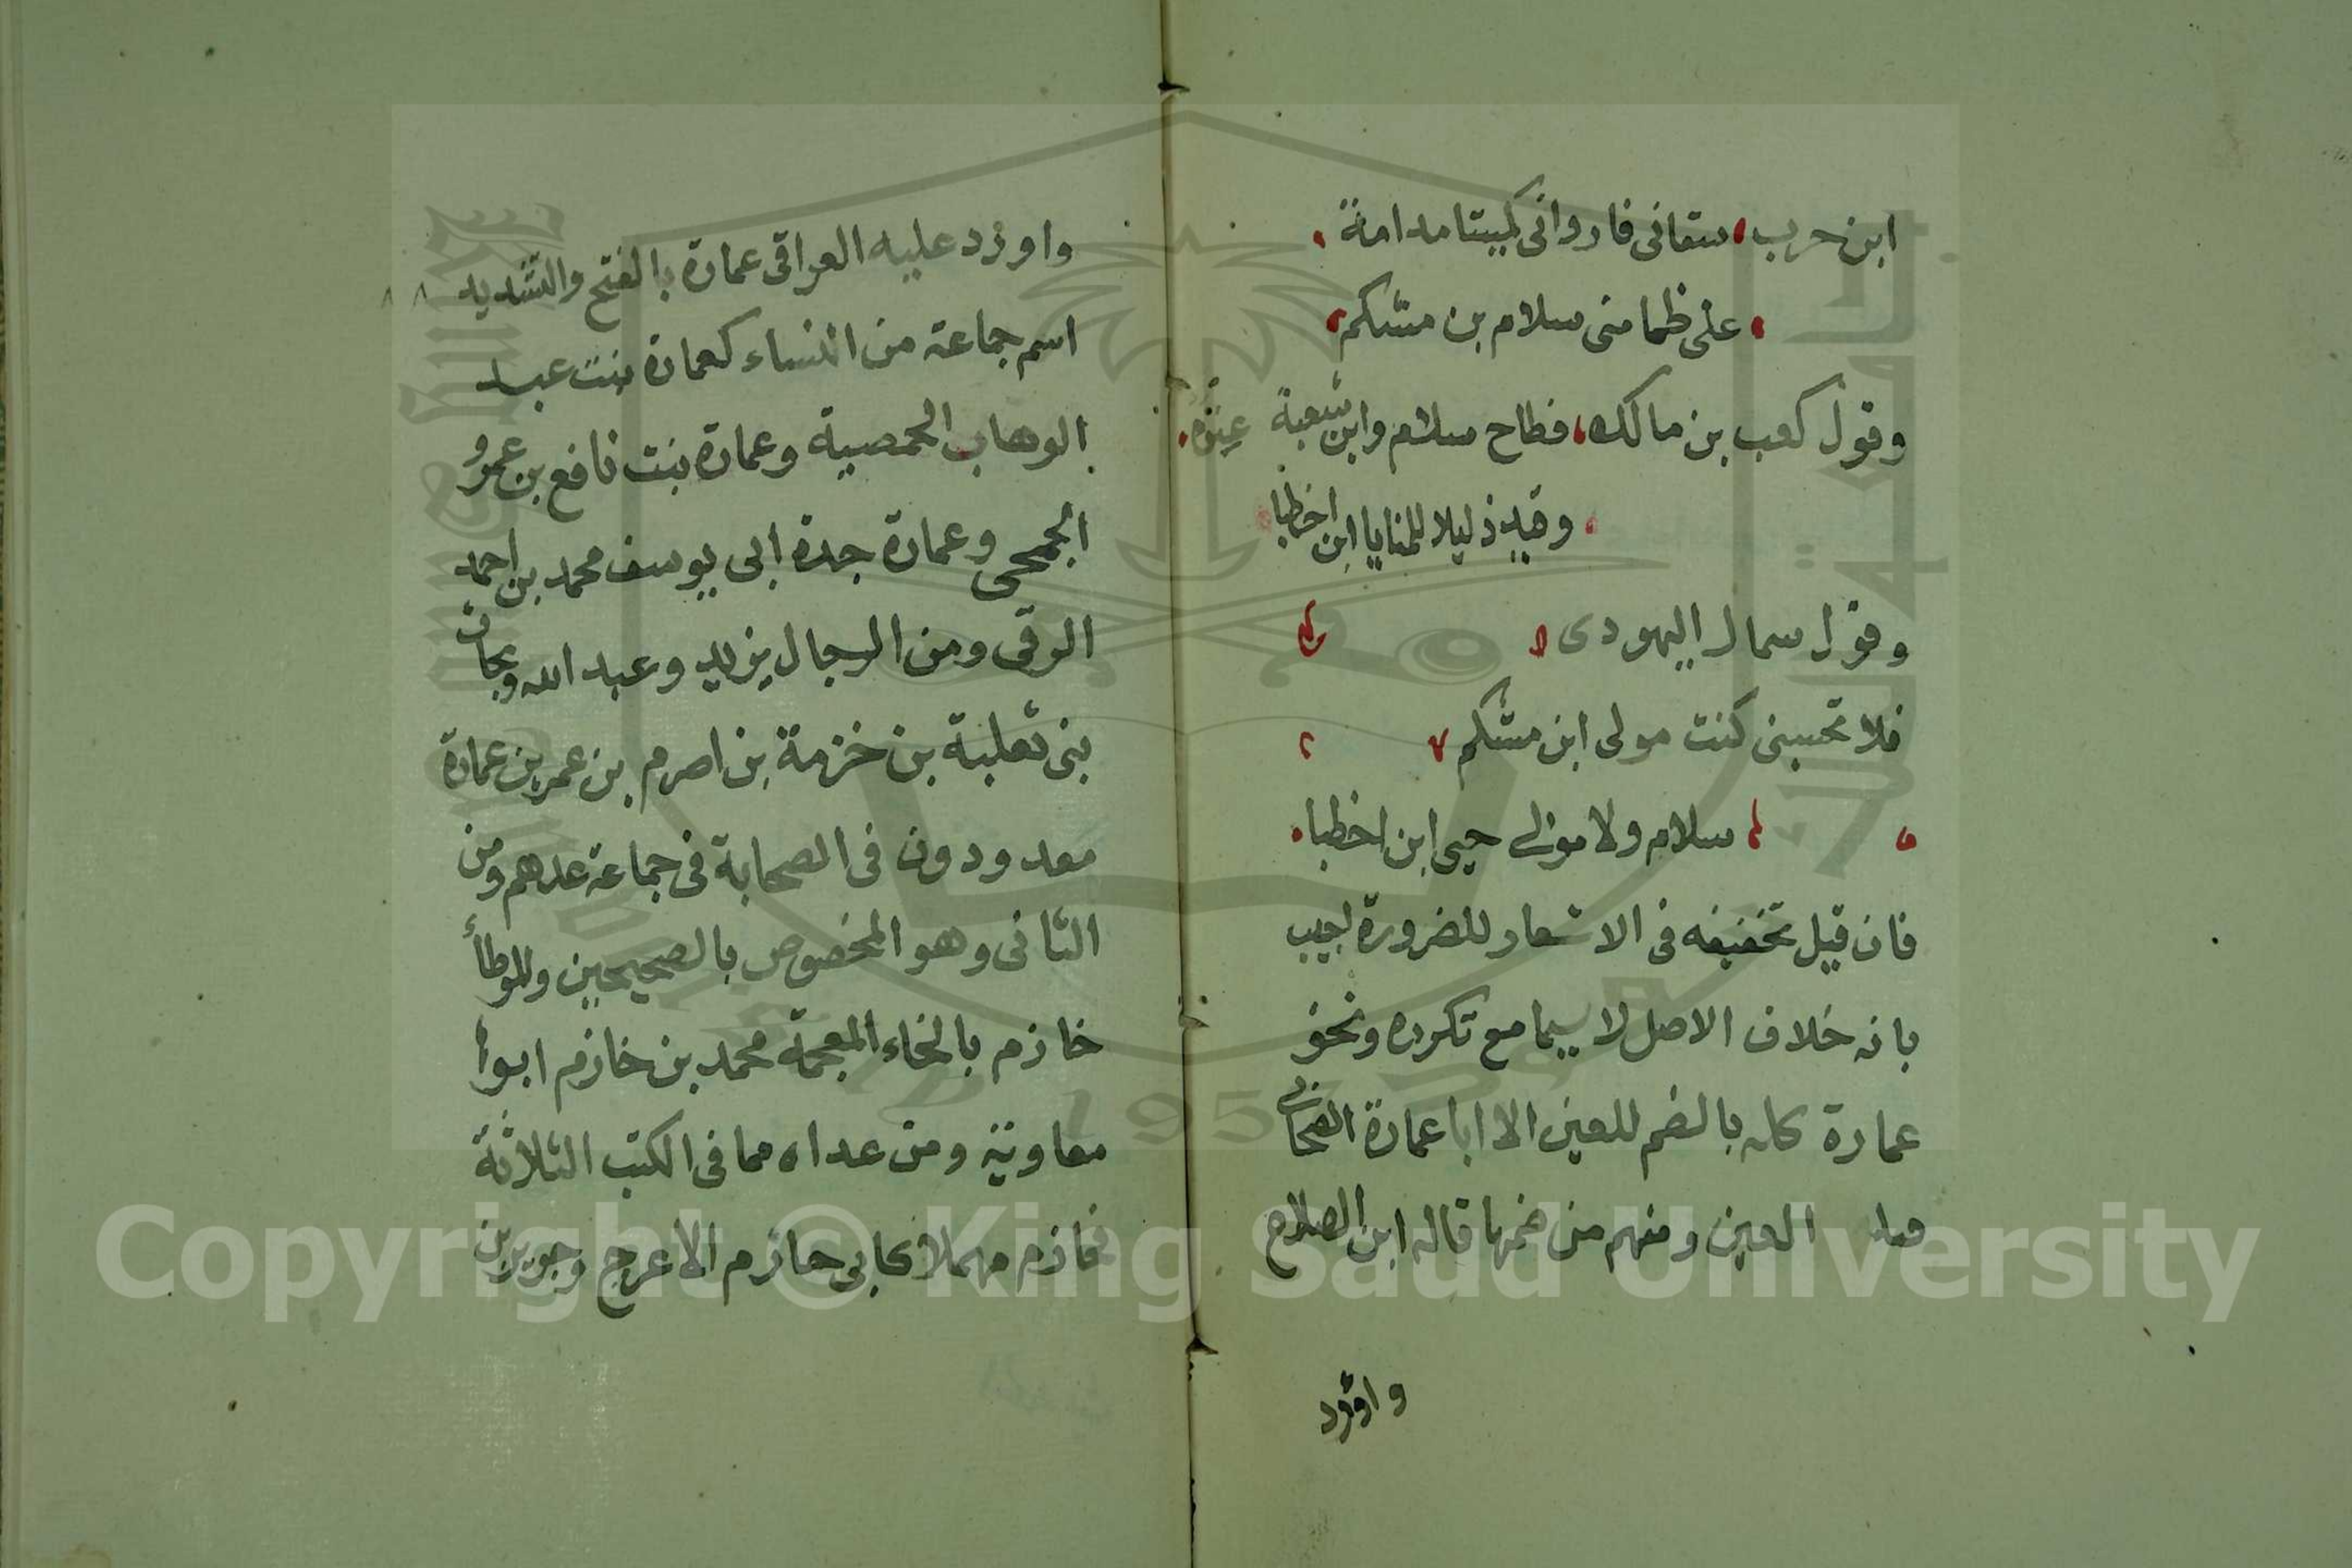 ابن حرب سقانى فاروانى كميتا مدامة
على ظما منى سلام بن مشكم
وقول كعب بن مالك فطاح سلام وابن شعبة عنوة
وقيد ذليلا للمنايا ابن اخطبا
وقول سمال اليهودى
فلا تحسبنى كنت مولى ابن مشكم
سلام ولا مولى حيى ابن اخطبا
فان قيل تخفيفه فى الاشعار للضرورة اجيب
بانه خلاف الاصل لا سيما مع تكرره ونحو
عمارة كله بالضم للعين الا ابا عمارة الصحابى
العين ومنهم من ضمها قاله ابن الصلاح
واورد
واورد عليه العراقى عمارة بالفتح والتشديد
اسم جماعة من النساء كعمارة بنت عبد
الوهاب الحمصية وعمارة بنت نافع بن عمرو
الجمحى وعمارة جدة ابى يوسف محمد بن احمد
الرقى ومن الرجال يزيد وعبد الله وبحاث
بنى ثعلبة بن خزمة بن اصرم بن عمر بن عمارة
معدودون فى الصحابة فى جماعة عدهم ومن
الثانى وهو المخصوص بالصحيحين والموطأ
خازم بالخاء المعجمة محمد بن خازم ابوا
معاوية ومن عداه مما فى الكتب الثلاثة
فحازم مهملا كابى حازم الاعرج وجرير بن
Copyright © King Saud University
1957